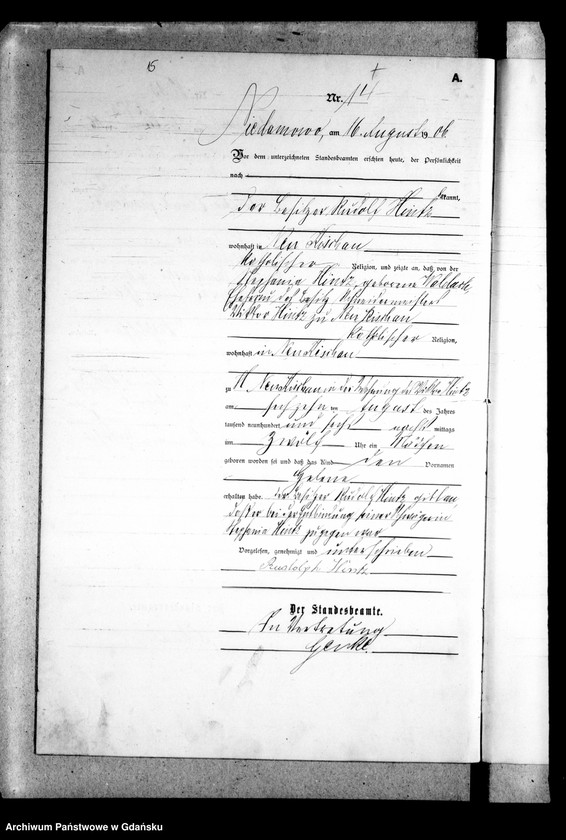 15
A.
Nr. 14
Niedamowo, am 16. August 1906.
Vor dem unterzeichneten Standesbeamten erschien heute, der Persönlichkeit
nach
kannt,
der Besitzer Rudolf Hintz
wohnhaft in Neu Kischau
katholischer Religion, und zeigte an, daß von der
Stephania Hintz, geborene
Ehefrau des Schneidermeister
Viktor Hintz zu Neu Kischau
katholischer Religion,
wohnhaft in Neu Kischau
zu Neu Kischau in der Wohnung des Viktor Hintz
am sechzehn ten August des Jahres
tausend neunhundert und sechs nach mittags
um zwölf Uhr ein Mädchen
geboren worden sei und daß das Kind den Vornamen
Helene
erhalten habe. Der Besitzer Rudolf Hintz
daß er bei der Entbindung seiner Schwägerin
Stephania Hintz zugegen war
Vorgelesen, genehmigt und unterschrieben
Rudolph Hintz
Der Standesbeamte.
In Vertretung
Archiwum Państwowe w Gdańsku